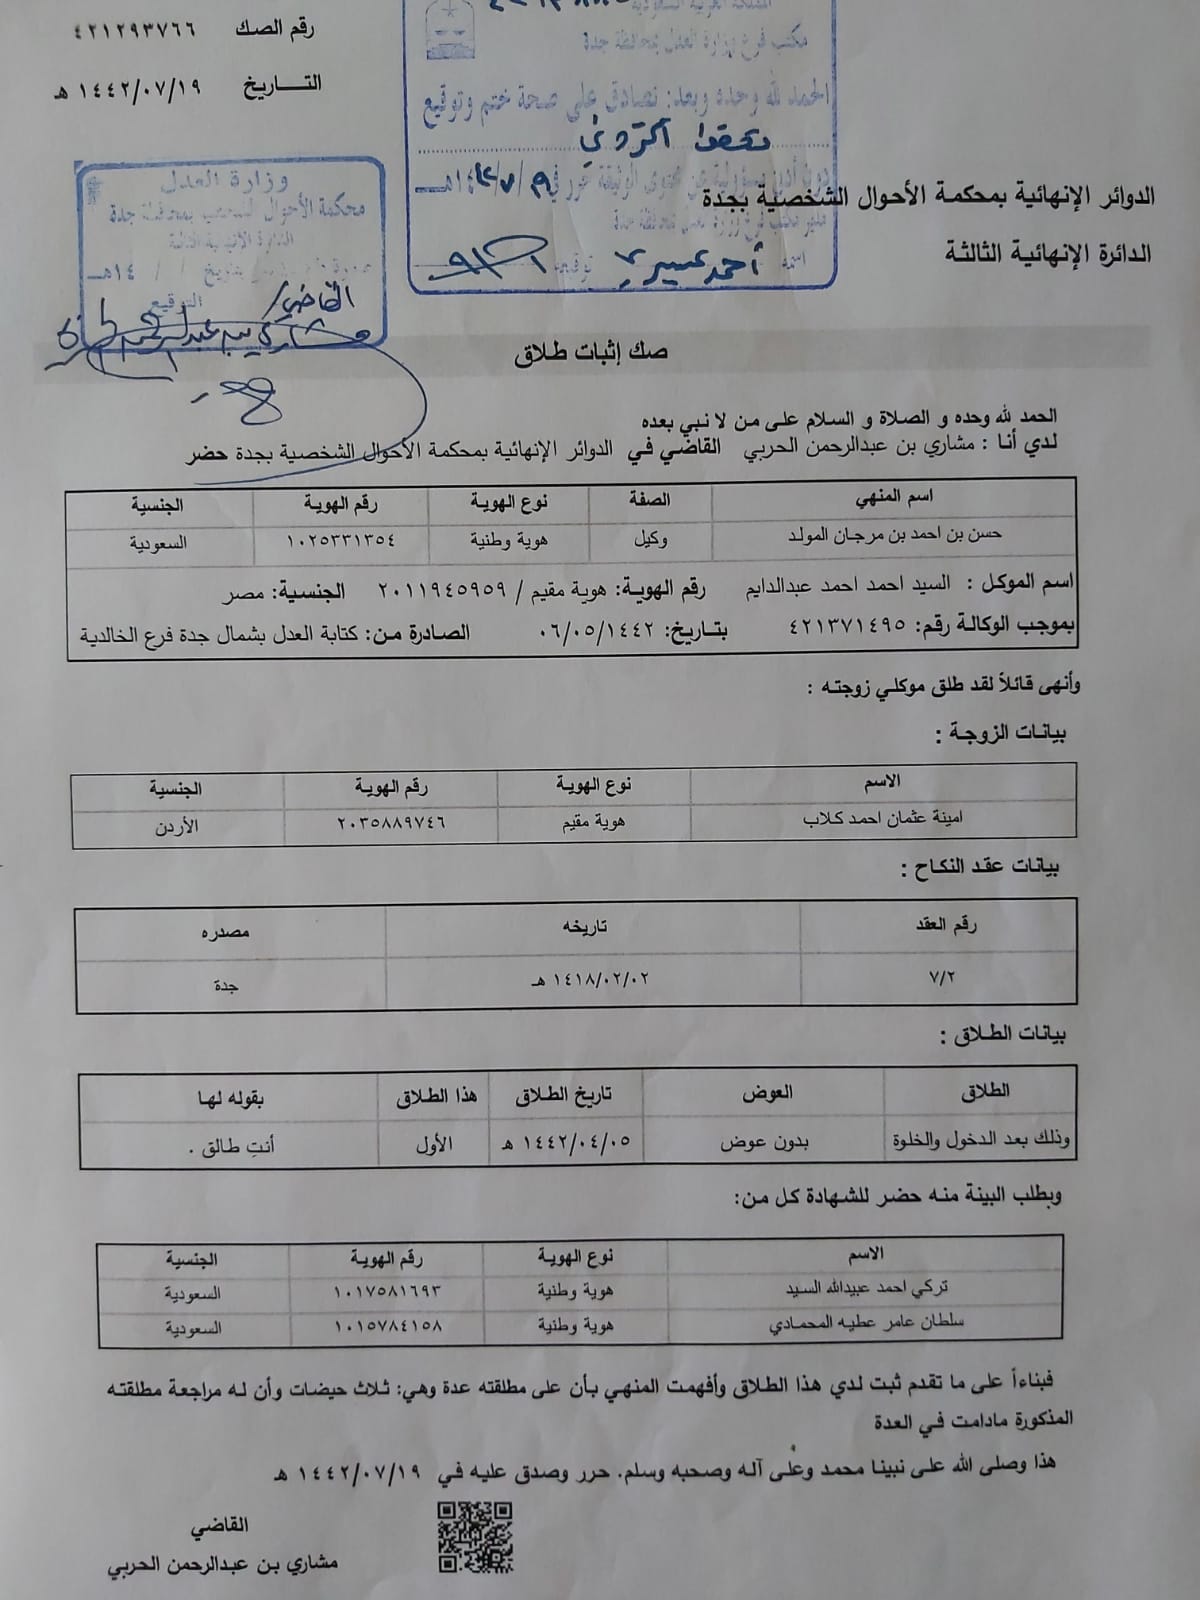 رقم الصك ٤٢١٢٩٣٧٦٦
التاريخ ١٤٤٢/٠٧/١٩ هـ
مكتب فرع وزارة العدل بمحافظة جدة
الحمد لله وحده وبعد: نصادق على صحة ختم وتوقيع
وزارة العدل
محكمة الأحوال الشخصية بمحافظة جدة
الدوائر الإنهائية بمحكمة الأحوال الشخصية بجدة
الدائرة الإنهائية الثالثة
اسمه أحمد عسيري توقيعه
التوقيع
القاضي/
صك إثبات طلاق
الحمد لله وحده و الصلاة و السلام على من لا نبي بعده
لدي أنا : مشاري بن عبدالرحمن الحربي القاضي في الدوائر الإنهائية بمحكمة الأحوال الشخصية بجدة حضر
اسم المنهي الصفة نوع الهوية رقم الهوية الجنسية
حسن بن احمد بن مرجان المولد وكيل هوية وطنية ١٠٢٥٣٣١٣٥٤ السعودية
اسم الموكل : السيد احمد احمد عبدالدايم رقم الهوية: هوية مقيم / ٢٠١١٩٤٥٩٥٩ الجنسية: مصر
بموجب الوكالة رقم: ٤٢١٣٧١٤٩٥ بتاريخ: ٠٦/٠٥/١٤٤٢ الصادرة من: كتابة العدل بشمال جدة فرع الخالدية
وأنهى قائلاً لقد طلق موكلي زوجته :
بيانات الزوجة :
الاسم نوع الهوية رقم الهوية الجنسية
امينة عثمان احمد كلاب هوية مقيم ٢٠٣٥٨٨٩٧٤٦ الأردن
بيانات عقد النكاح :
رقم العقد تاريخه مصدره
٧/٢ ١٤١٨/٠٢/٠٢ هـ جدة
بيانات الطلاق :
الطلاق العوض تاريخ الطلاق هذا الطلاق بقوله لها
وذلك بعد الدخول والخلوة بدون عوض ١٤٤٢/٠٤/٠٥ هـ الأول أنتِ طالق .
وبطلب البينة منه حضر للشهادة كل من:
الاسم نوع الهوية رقم الهوية الجنسية
تركي احمد عبيدالله السيد هوية وطنية ١٠١٧٥٨١٦٩٣ السعودية
سلطان عامر عطيه المحمادي هوية وطنية ١٠١٥٧٨٤١٥٨ السعودية
فبناءاً على ما تقدم ثبت لدي هذا الطلاق وأفهمت المنهي بأن على مطلقته عدة وهي: ثلاث حيضات وأن له مراجعة مطلقته
المذكورة مادامت في العدة
هذا وصلى الله على نبينا محمد وعلى آله وصحبه وسلم. حرر وصدق عليه في ١٤٤٢/٠٧/١٩ هـ
القاضي
مشاري بن عبدالرحمن الحربي